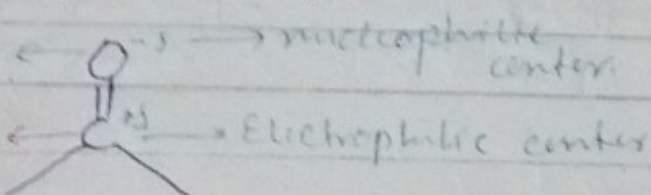 O -δ → nucleophilic
center.
C +δ → Electrophilic center